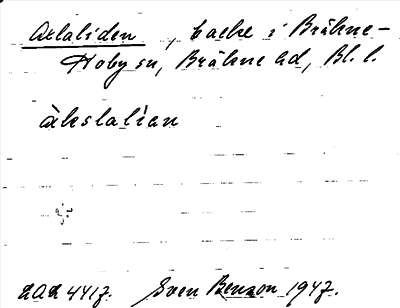 Axlaliden, backe i Bräkne-
Hoby sn, Bräkne hd, Bl. l.
àkslalìan
LAL 4417. Sven Benson 1947.